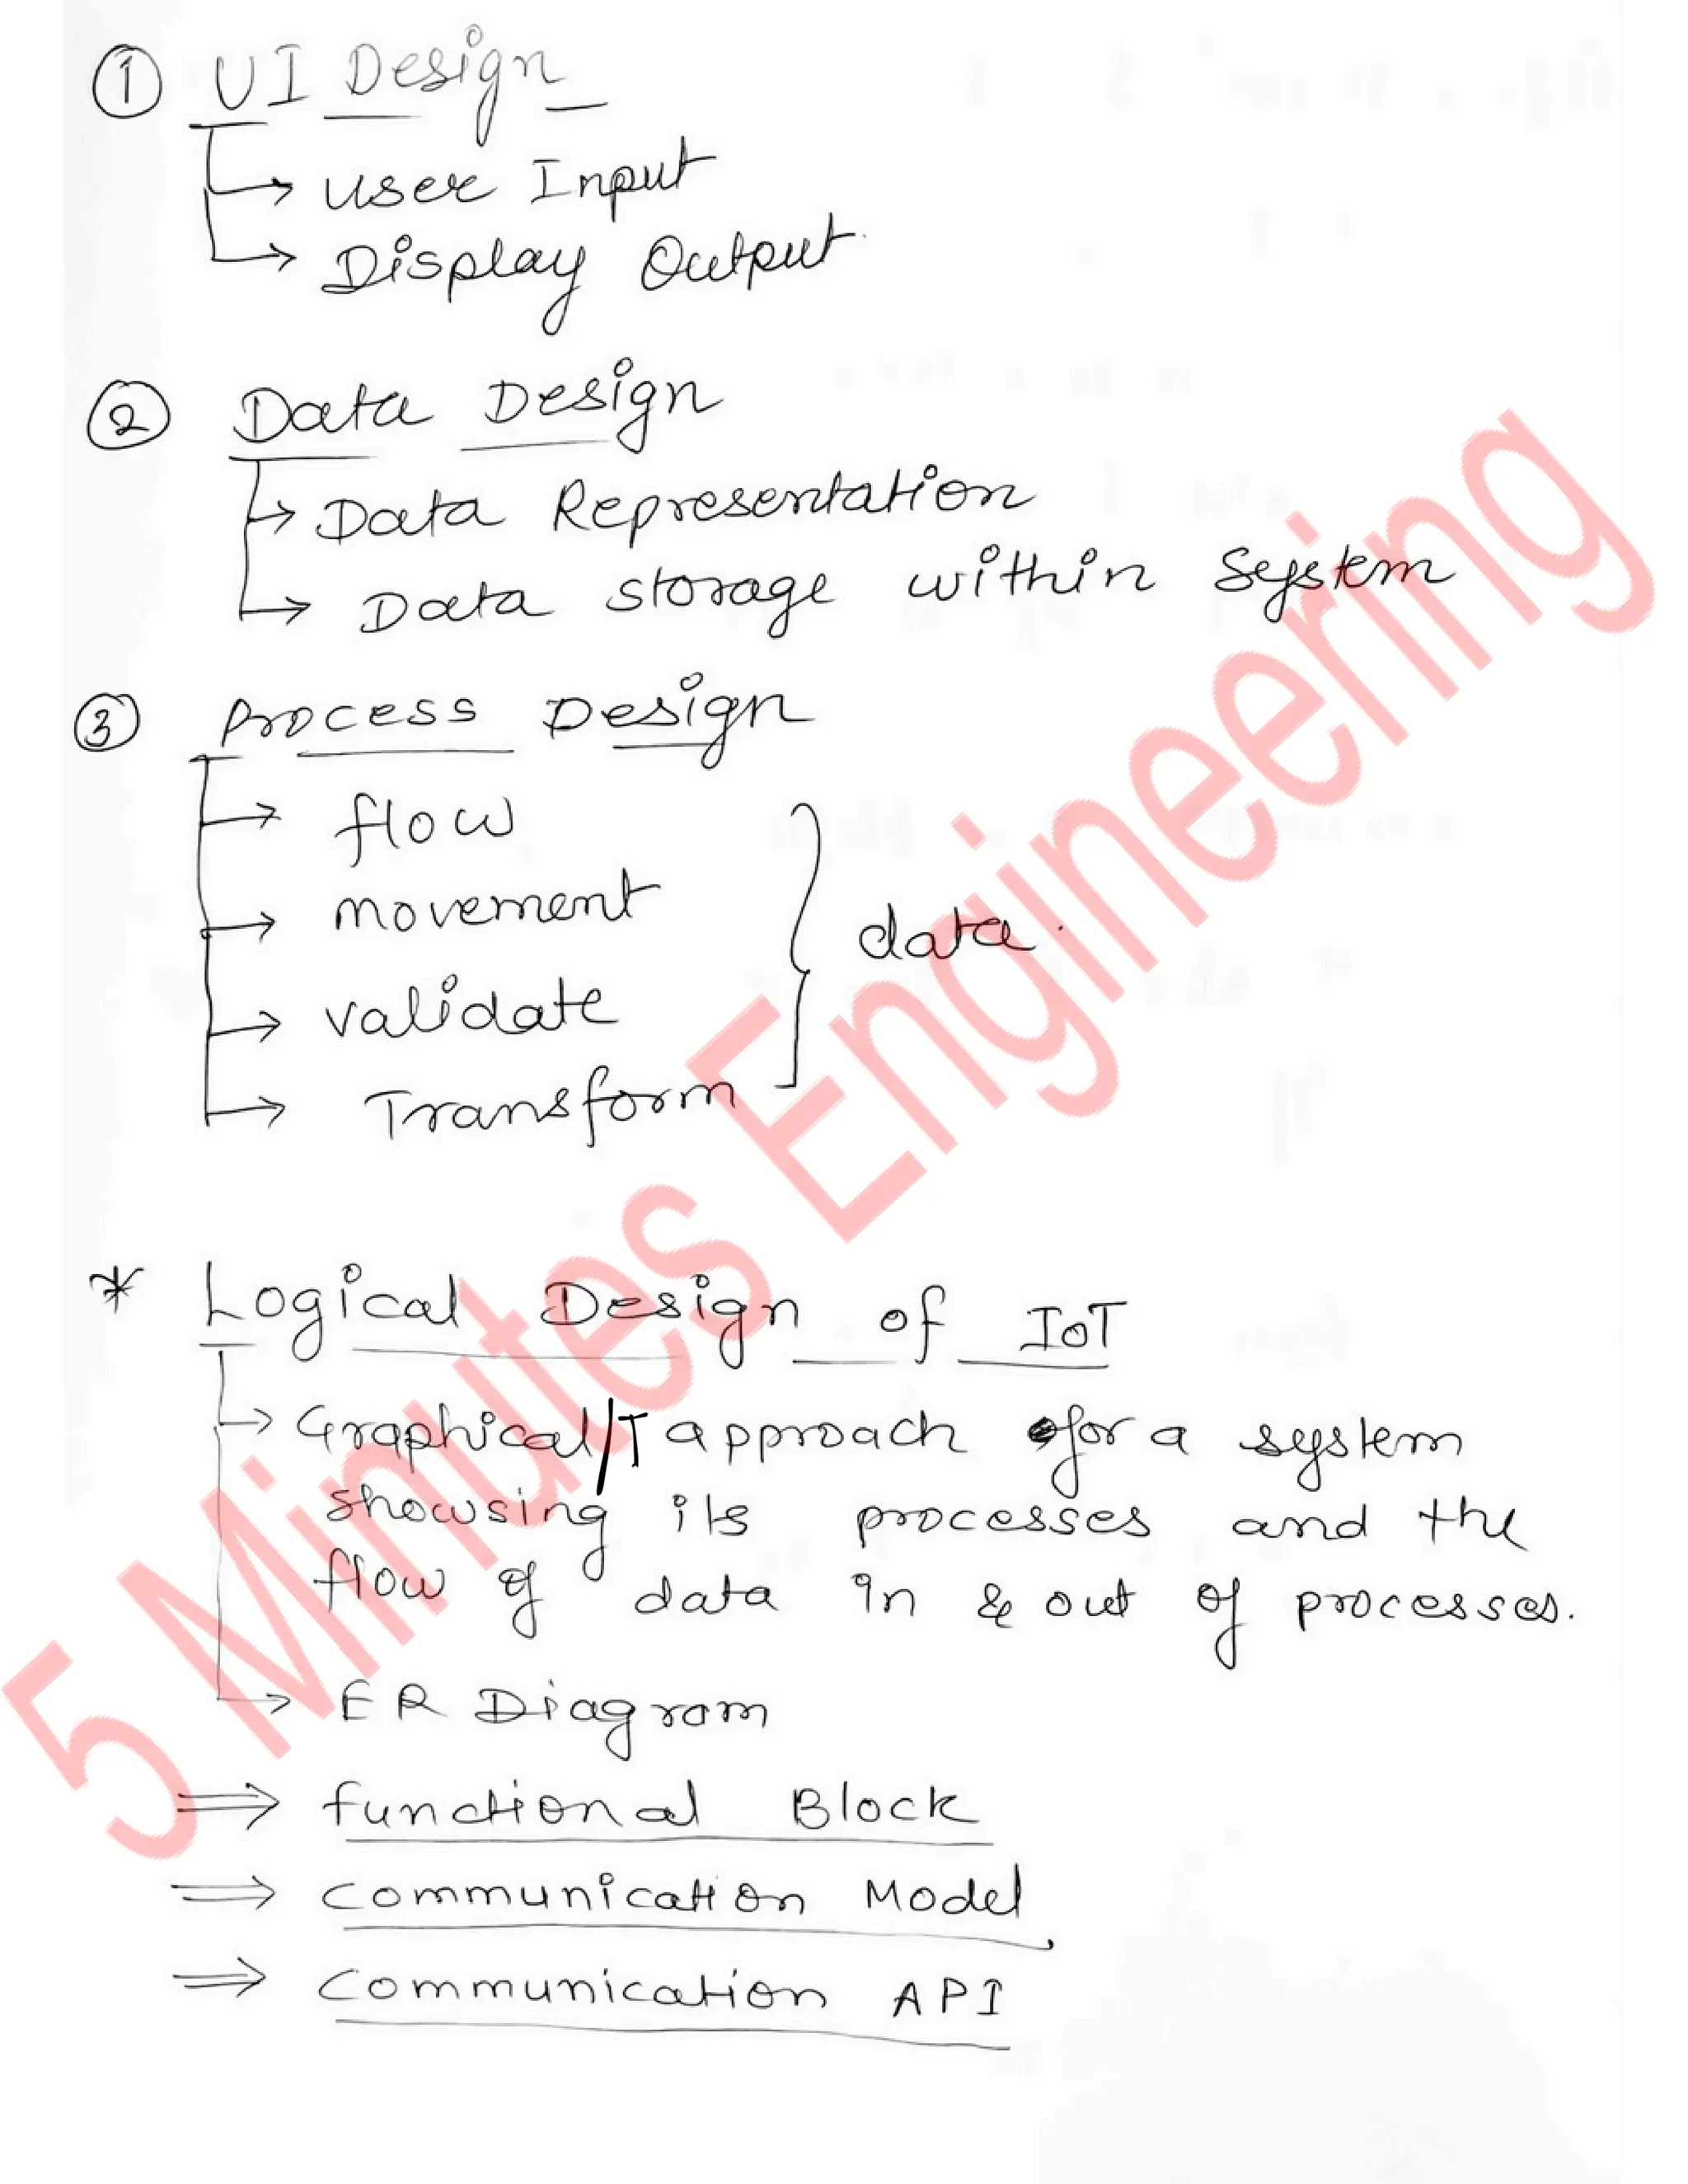 ① UI Design
→ User Input
→ Display Output
② Data Design
→ Data Representation
→ Data storage within System
③ Process Design
→ flow
→ movement
→ validate
→ Transform
} data.
* Logical Design of IoT
→ Graphical/T approach for a system
showsing its processes and the
flow of data in & out of processes.
→ ER Diagram
⇒ functional Block
⇒ Communication Model
⇒ Communication API
5 Minutes Engineering